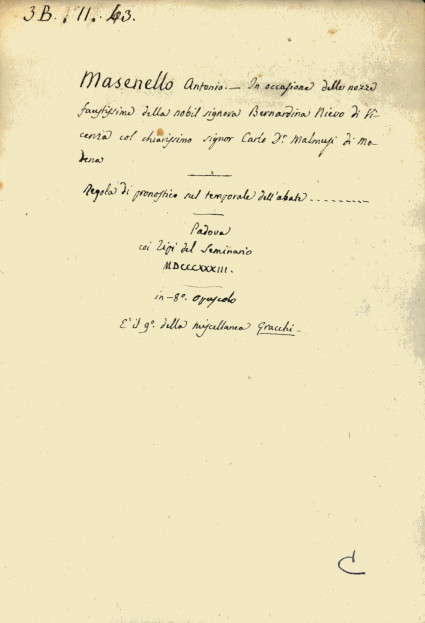 3B. 11. 43.
Masenello Antonio. — In occasione delle nozze
faustissime della nobil signora Bernardina Nievo di Vi-
cenza col chiarissimo signor Carlo Dr. Malmusi di Mo-
dena
Regola di pronostico sul temporale dell'abate ---------
Padova
coi Tipi del Seminario
MDCCCXXXIII.
in-8o. opuscolo
E' il 9o. della miscellanea Gracchi.
C